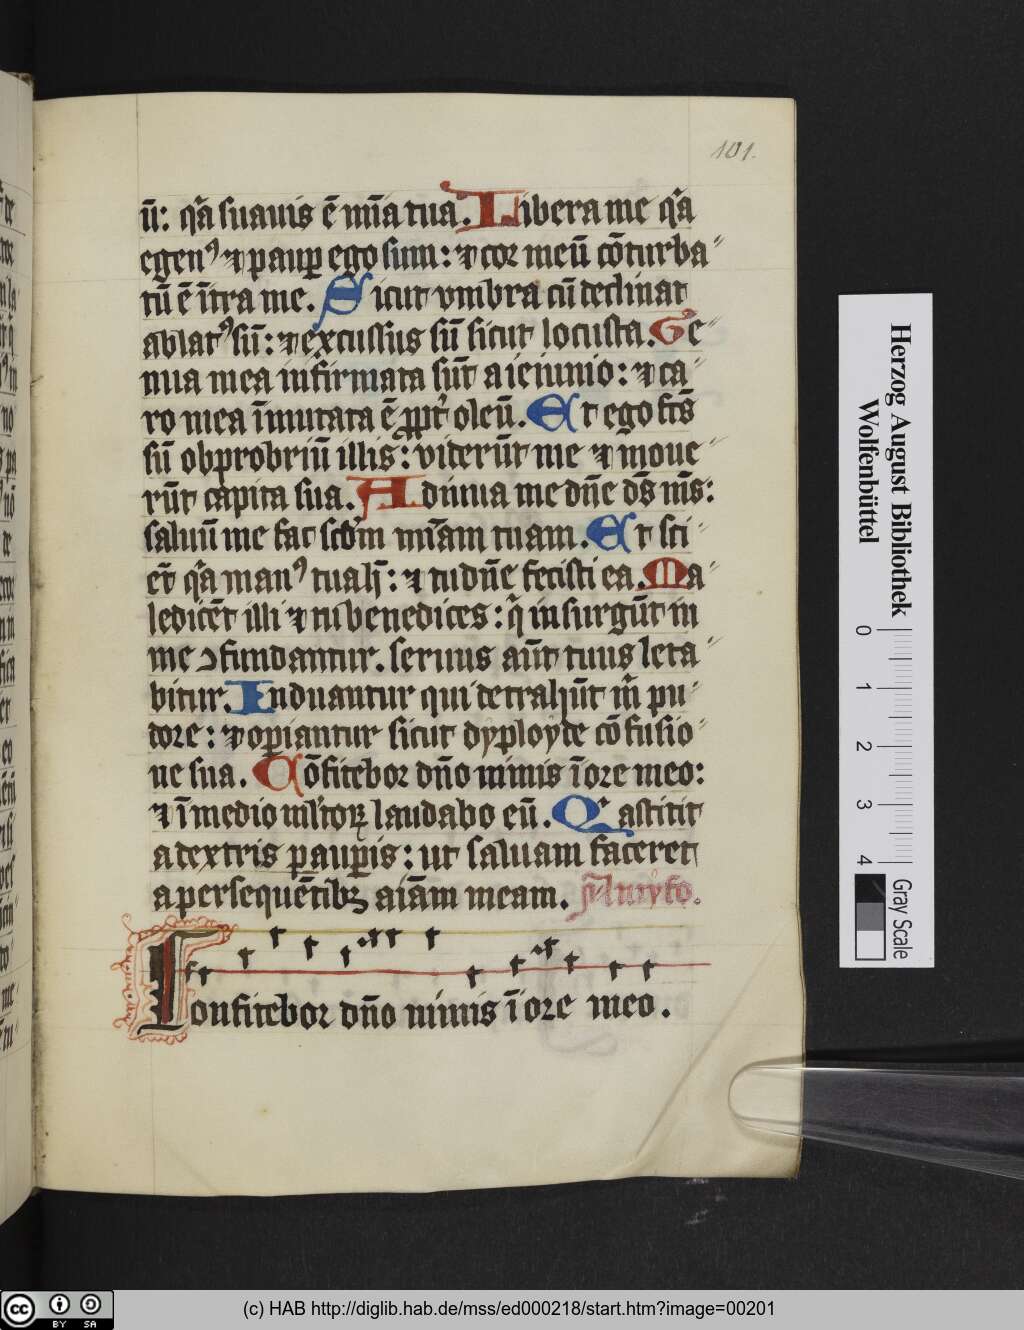 101.
ū: qͣa suauis ē mīa tua. Libera me qͣa
egenꝰ ⁊ paup̲ ego sum: ⁊ cor meū cōturba
tū ē ītra me. Sicut vmbra cū declinat
ablatꝰ sū: ⁊ excussus sū sicut locusta. Ge
nua mea infirmata sūt a ieiunio: ⁊ ca
ro mea īmutata ē ꝓpt̕ oleū. Et ego fc̄s
sū obprobriū illis: viderūt me ⁊ moue
rūt capita sua. Adiuua me dn̄e ds̄ m̄s:
saluū me fac scd̕m mīam tuam. Et sci
āt qͣa manꝰ tua h̄: ⁊ tu dn̄e fecisti ea. Ma
ledicēt illi ⁊ tu benedices: qͥ insurgūt in
me ↄfundantur. seruus aūt tuus leta
bitur. Induantur qui detrahūt m̄ pu
dore: ⁊ op̲iantur sicut dyployde cōfusio
ne sua. Cōfitebor dn̄o nimis ī ore meo:
⁊ ī medio ml̕torꝝ laudabo eū. Qͥ astitit
a dextris paup̲is: ut saluam faceret
a persequētibꝫ aīam meam.
Confitebor dn̄o nimis ī ore meo.
Herzog August Bibliothek
Wolfenbüttel
0 1 2 3 4
Gray Scale
cc BY SA
(c) HAB http://diglib.hab.de/mss/ed000218/start.htm?image=00201